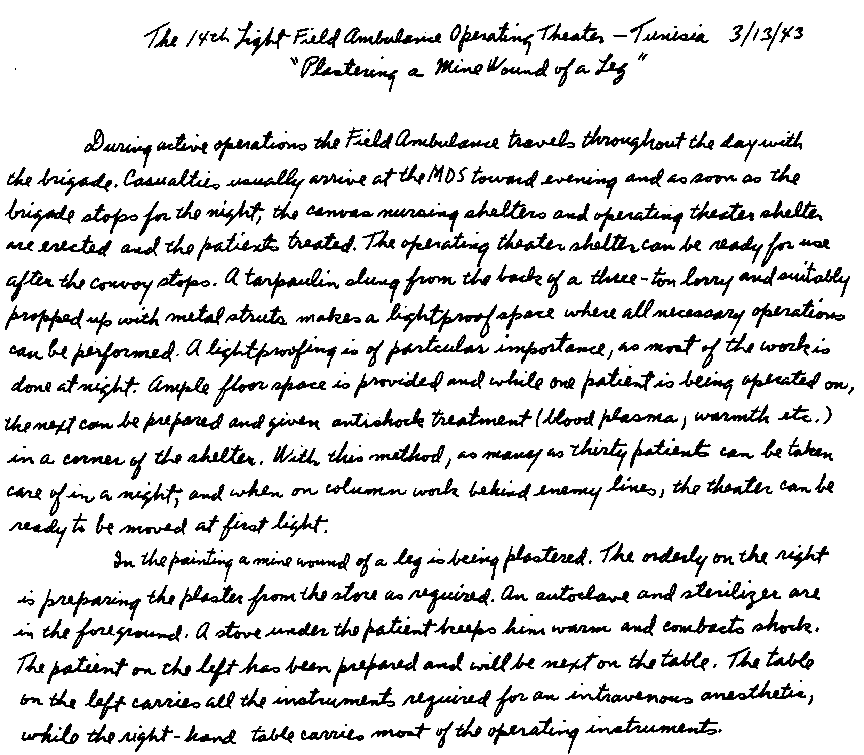 The 14th Light Field Ambulance Operating Theater – Tunisia 3/13/43
"Plastering a Mine Wound of a Leg"
During active operations the Field Ambulance travels throughout the day with
the brigade. Casualties usually arrive at the MDS toward evening and as soon as the
brigade stops for the night, the canvas nursing shelters and operating theater shelter
are erected and the patients treated. The operating theater shelter can be ready for use
after the convoy stops. A tarpaulin slung from the back of a three-ton lorry and suitably
propped up with metal struts makes a lightproof space where all necessary operations
can be performed. A lightproofing is of particular importance, as most of the work is
done at night. Ample floor space is provided and while one patient is being operated on,
the next can be prepared and given antishock treatment (blood plasma, warmth etc.)
in a corner of the shelter. With this method, as many as thirty patients can be taken
care of in a night, and when on column work behind enemy lines, the theater can be
ready to be moved at first light.
In the painting a mine wound of a leg is being plastered. The orderly on the right
is preparing the plaster from the store as required. An autoclave and sterilizer are
in the foreground. A stove under the patient keeps him warm and combacts shock.
The patient on the left has been prepared and will be next on the table. The table
on the left carries all the instruments required for an intravenous anesthetic,
while the right-hand table carries most of the operating instruments.